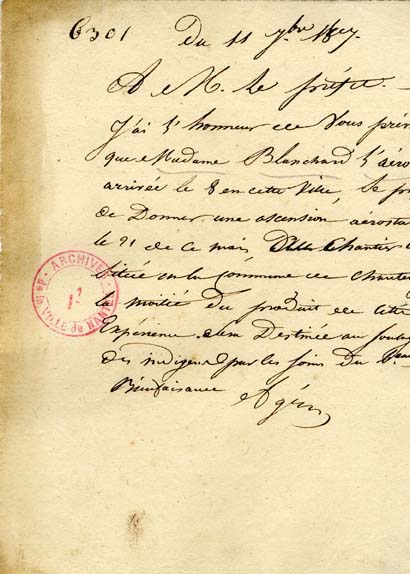 6301 du 11 7bre 1817.
A M. Le préfet.
J'ai l'honneur de Vous prév
que Madame Blanchard l'aéro
arrivée le 8 en cette Ville, Se pr
de Donner une ascension aérosta
le 21 de ce mois, Chantier
Située en la Commune de Chante
la moitié du produit de cette
Expérience Destinée au Soulag
des indigens par les soins du Bur
Bienfaisance
ARCHIVES de la VILLE de NANTES
I 2
1